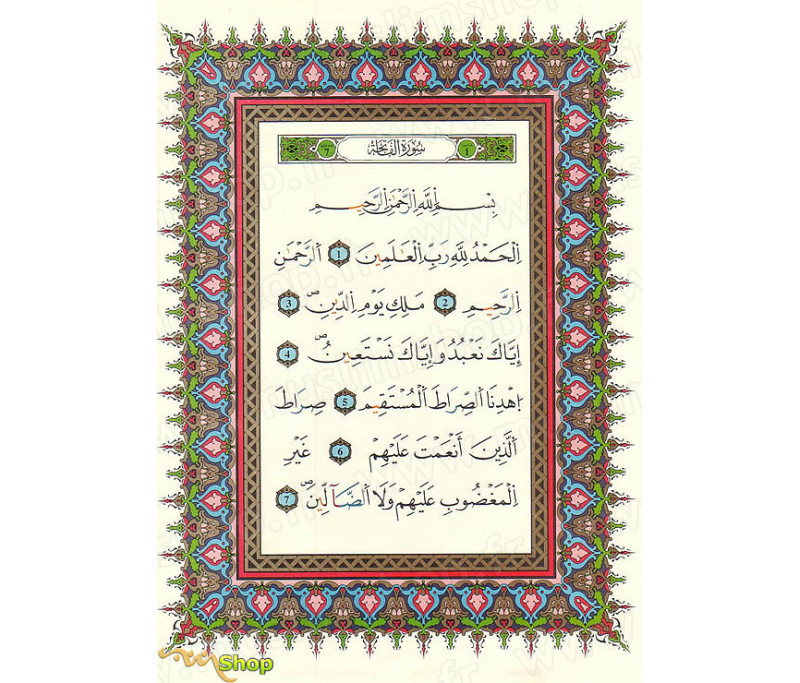 سُورَةُ الْفَاتِحَةِ
بِسْمِ اِ۬للَّهِ اِ۬لرَّحْمَٰنِ اِ۬لرَّحِيمِ
اِ۬لْحَمْدُ لِلهِ رَبِّ اِ۬لْعَٰلَمِينَ 1 اَ۬لرَّحْمَٰنِ
اِ۬لرَّحِيمِ 2 مَلِكِ يَوْمِ اِ۬لدِّينِۖ 3
إِيَّاكَ نَعْبُدُ وَإِيَّاكَ نَسْتَعِينُۖ 4
اُ۪هْدِنَا اَ۬لصِّرَٰطَ اَ۬لْمُسْتَقِيمَ 5 صِرَٰطَ
اَ۬لذِينَ أَنْعَمْتَ عَلَيْهِمْ 6 غَيْرِ
اِ۬لْمَغْضُوبِ عَلَيْهِمْ وَلَا اَ۬لضَّآلِّينَۖ 7
Shop